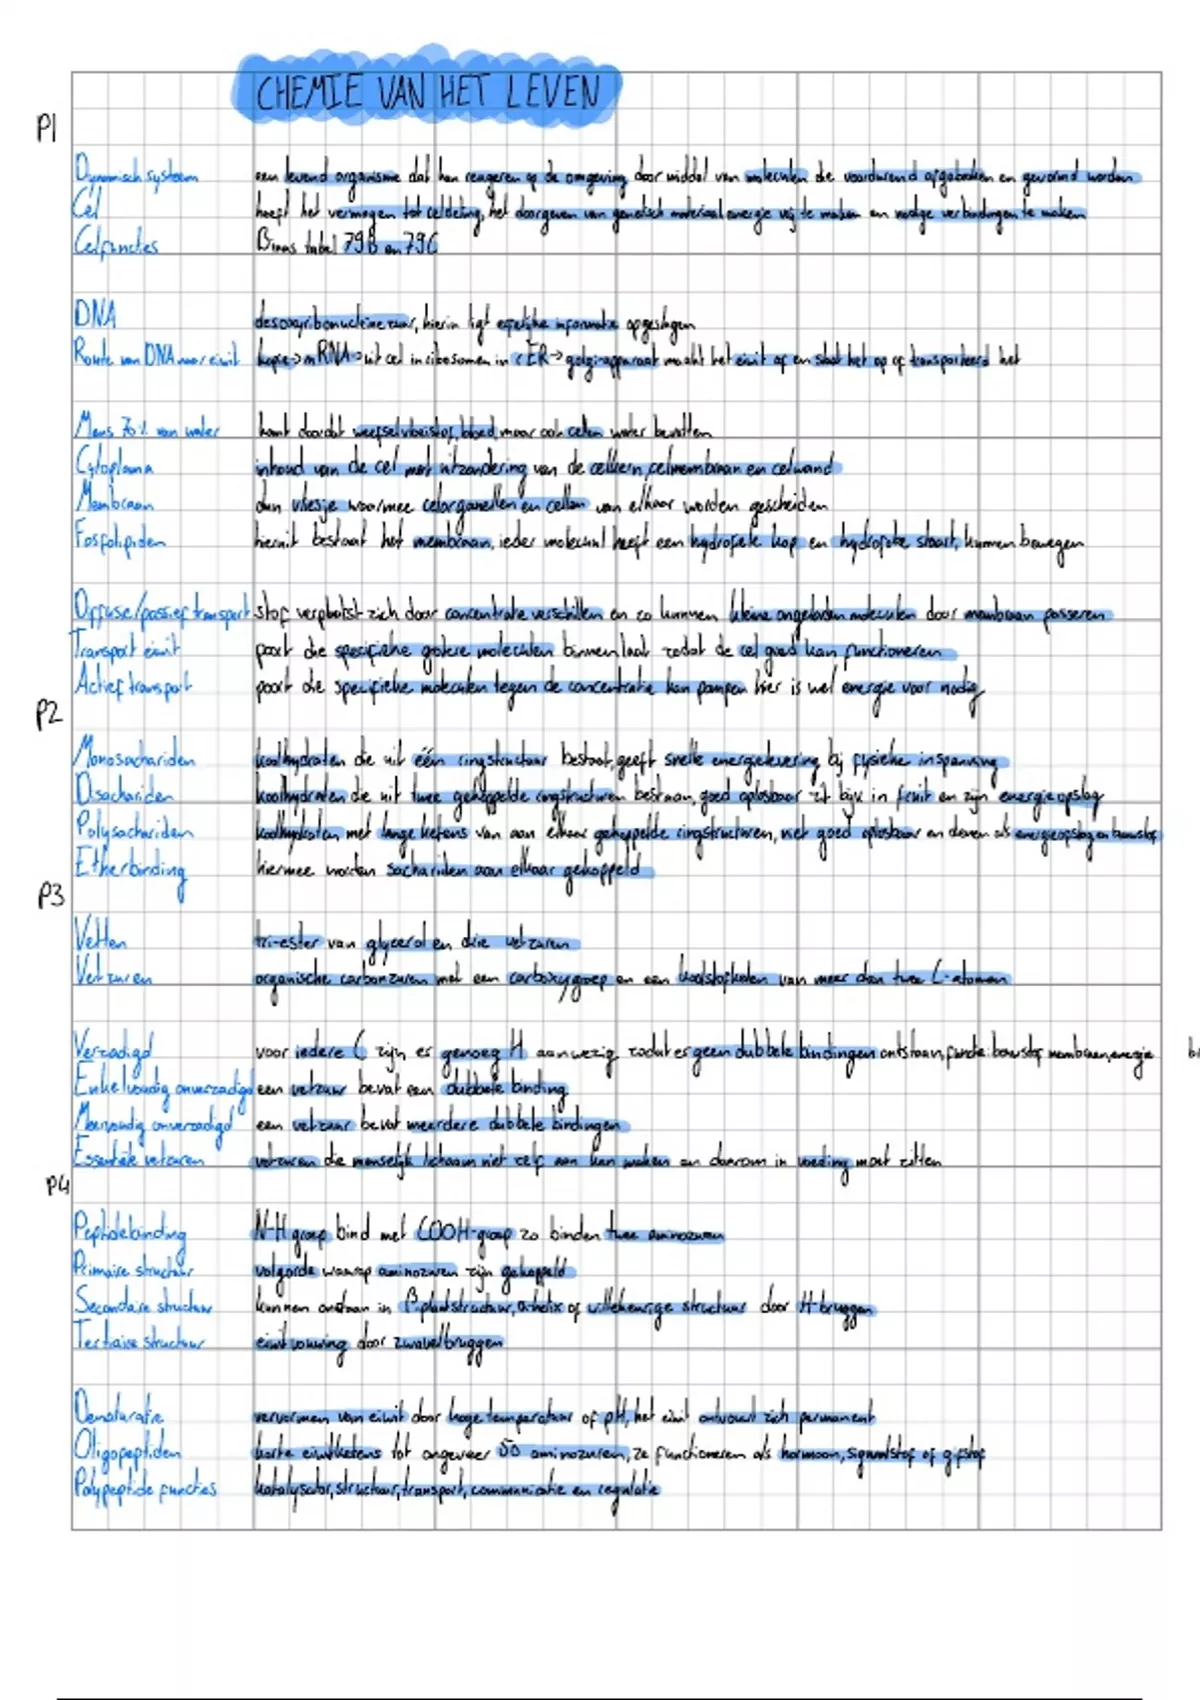 CHEMIE VAN HET LEVEN
P1
Dynamisch systeem een levend organisme dat kan reageren op de omgeving door middel van moleculen die voortdurend afgebroken en gevormd worden
Cel heeft het vermogen tot celdeling, het doorgeven van genetisch materiaal energie vrij te maken en nodige verbindingen te maken
Celfuncties Binas tabel 79B en 79C
DNA desoxyribonucleïnezuur, hierin ligt erfelijke informatie opgeslagen
Route van DNA naar eiwit kopie → mRNA → uit cel in ribosomen in rER → golgi-apparaat maakt het eiwit af en slaat het op of transporteerd het
Mens 70% van water komt doordat weefselvloeistof, bloed, maar ook cellen water bevatten
Cytoplasma inhoud van de cel met uitzondering van de celkern, celmembraan en celwand
Membraan dun vliesje waarmee celorganellen en cellen van elkaar worden gescheiden
Fosfolipiden hieruit bestaat het membraan, ieder molecuul heeft een hydrofiele kop en hydrofobe staart, kunnen bewegen
Diffusie/passief transport stof verplaatst zich door concentratie verschillen en zo kunnen kleine ongeladen moleculen door membraan passeren
Transport eiwit poort die specifieke grotere moleculen binnenlaat zodat de cel goed kan functioneren
Actief transport poort die specifieke moleculen tegen de concentratie kan pompen hier is wel energie voor nodig
P2
Monosachariden koolhydraten die uit één ringstructuur bestaat, geeft snelle energielevering bij fysieke inspanning
Disachariden koolhydraten die uit twee gekoppelde ringstructuren bestaan, goed oplosbaar zit bijv. in fruit en zijn energieopslag
Polysachariden koolhydraten met lange ketens van aan elkaar gekoppelde ringstructuren, niet goed oplosbaar en dienen als energieopslag en bouwstof
Etherbinding hiermee worden sachariden aan elkaar gekoppeld
P3
Vetten tri-ester van glycerol en drie vetzuren
Vetzuren organische carbonzuren met een carboxygroep en een koolstofketen van meer dan twee C-atomen
Verzadigd voor iedere C zijn er genoeg H aanwezig zodat er geen dubbele bindingen ontstaan, functie: bouwstof membranen, energie
Enkelvoudig onverzadigd een vetzuur bevat een dubbele binding
Meervoudig onverzadigd een vetzuur bevat meerdere dubbele bindingen
Essentiële vetzuren vetzuren die menselijk lichaam niet zelf aan kan maken en daarom in voeding moet zitten
P4
Peptidebinding N-H groep bind met COOH-groep zo binden twee aminozuren
Primaire structuur volgorde waarop aminozuren zijn gekoppeld
Secondaire structuur kunnen ontstaan in β-plaatstructuur, α-helix of willekeurige structuur door H-bruggen
Tertiaire structuur eiwitvouwing door zwavelbruggen
Denaturatie vervormen van eiwit door hoge temperatuur of pH, het eiwit ontvouwt zich permanent
Oligopeptiden korte eiwitketens tot ongeveer 50 aminozuren, ze functioneren als hormoon, signaalstof of gifstof
Polypeptide functies katalysator, structuur, transport, communicatie en regulatie